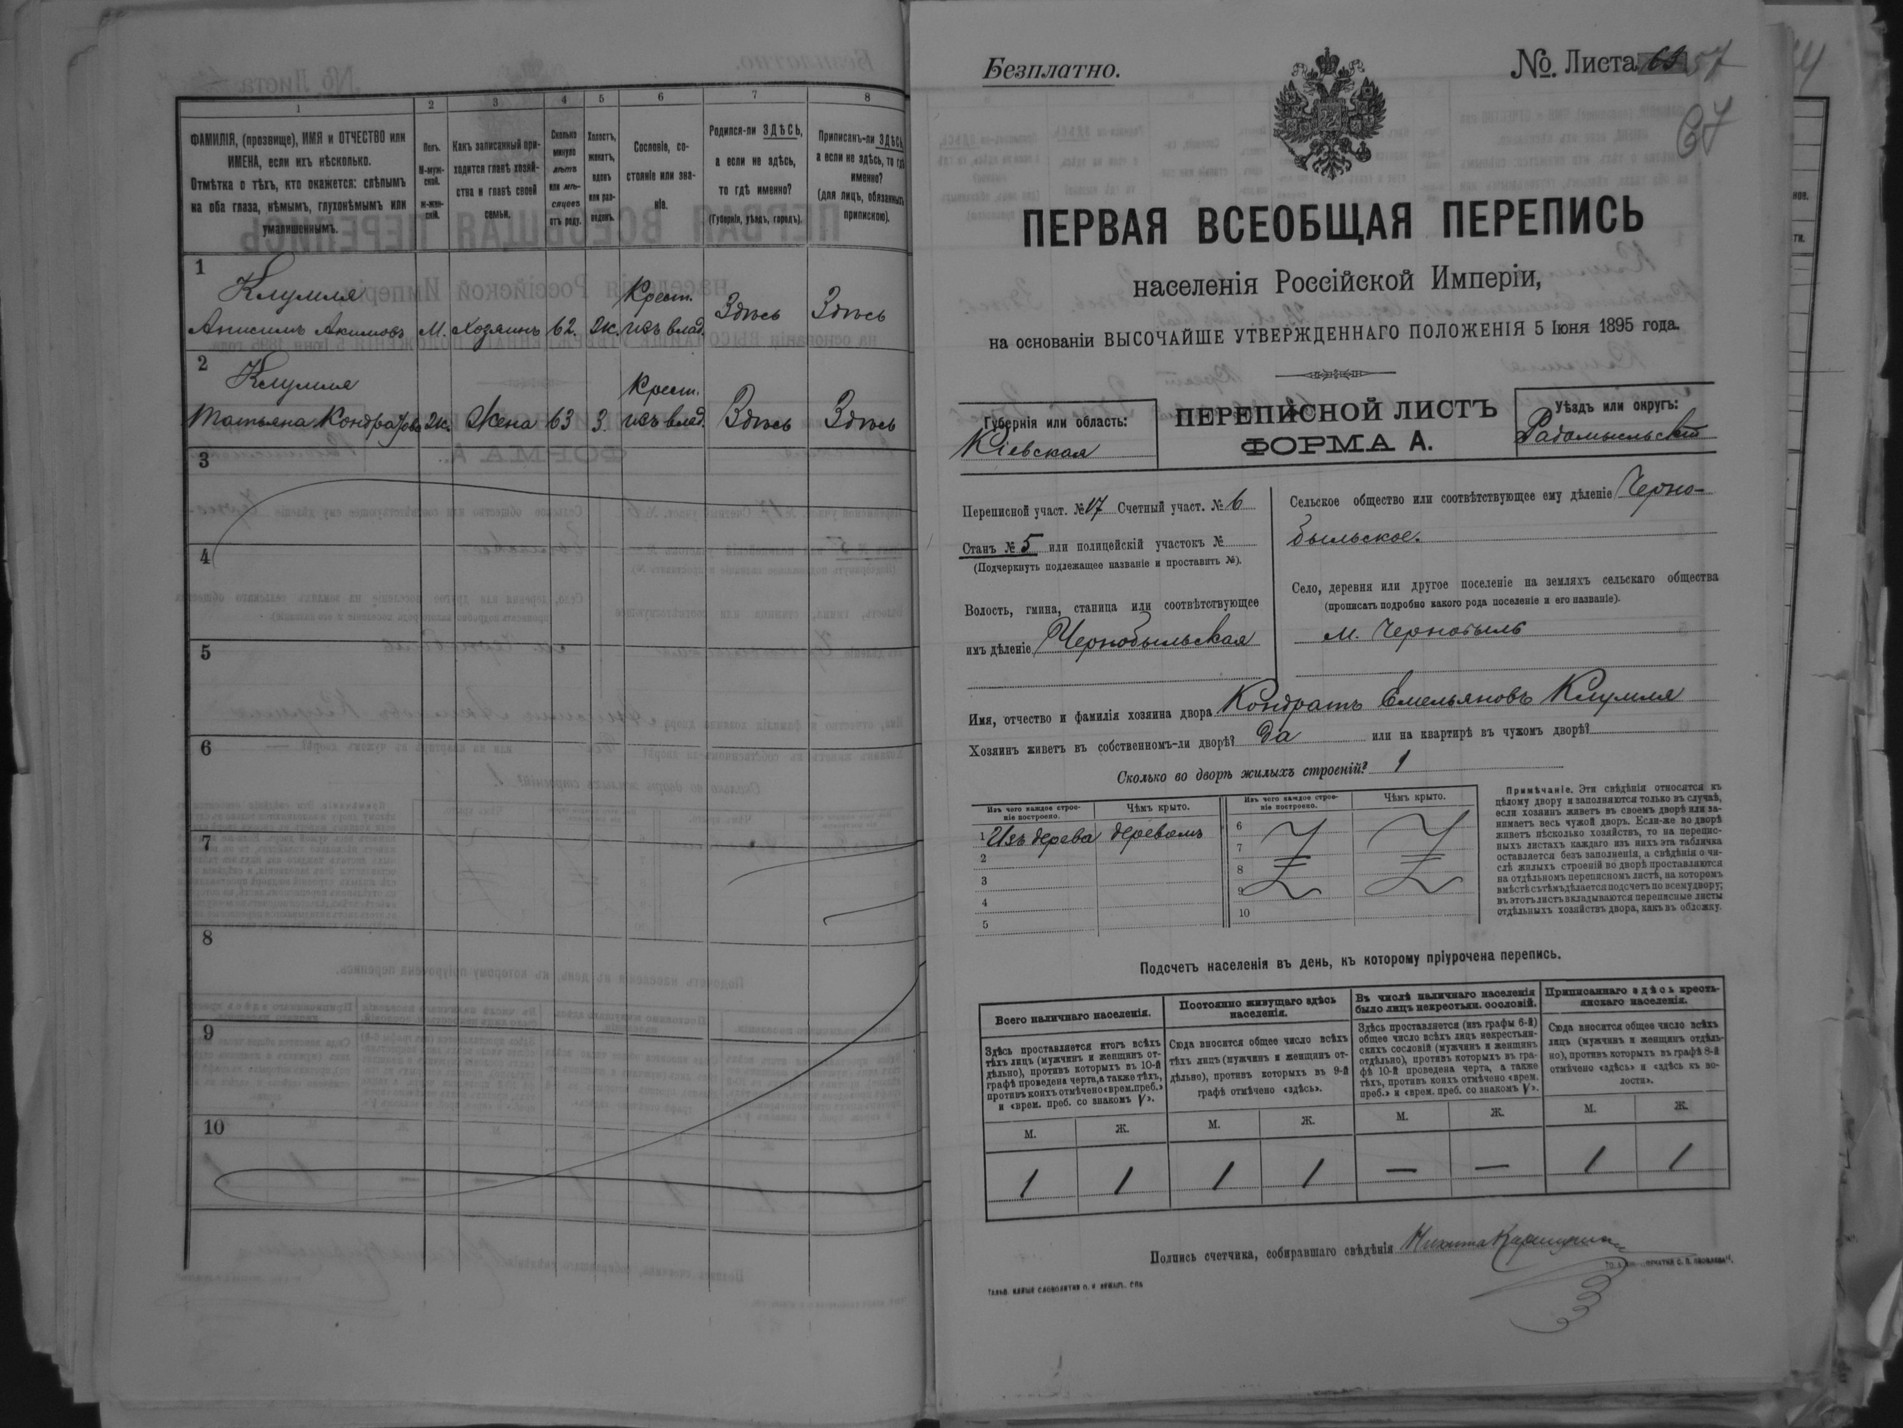 1 2 3 4 5 6 7 8
ФАМИЛІЯ, (прозвище), ИМЯ и ОТЧЕСТВО или
ИМЕНА, если ихъ нѣсколько.
Отмѣтка о тѣхъ, кто окажется: слѣпымъ
на оба глаза, нѣмымъ, глухонѣмымъ или
умалишеннымъ.
Полъ.
М-муж-
ской.
ж-жен-
скій.
Какъ записанный при-
ходится главѣ хозяй-
ства и главѣ своей
семьи.
Сколько
минуло
лѣтъ
или мѣ-
сяцевъ
отъ роду.
Холостъ,
женатъ,
вдовъ
или раз-
веденъ.
Сословіе, со-
стояніе или зва-
ніе.
Родился-ли ЗДѢСЬ,
а если не здѣсь,
то гдѣ именно?
(Губернія, уѣздъ, городъ).
Приписанъ-ли ЗДѢСЬ,
а если не здѣсь, то гдѣ
именно?
(для лицъ, обязанныхъ
припискою).
1
Клумля Крест.
Анисимъ Акимовъ М. Хозяинъ 62. ж. изъ влад. Здѣсь Здѣсь
2
Клумля Крест.
Татьяна Кондратова ж. Жена 63 з. изъ влад. Здѣсь Здѣсь
3
4
5
6
7
8
9
10
Безплатно.
№. Листа 57
67
ПЕРВАЯ ВСЕОБЩАЯ ПЕРЕПИСЬ
населенія Россійской Имперіи,
на основаніи ВЫСОЧАЙШЕ УТВЕРЖДЕННАГО ПОЛОЖЕНІЯ 5 Іюня 1895 года.
Губернія или область:
Кіевская
ПЕРЕПИСНОЙ ЛИСТЪ
ФОРМА А.
Уѣздъ или округъ:
Радомысльскій
Переписной участ. № 17 Счетный участ. № 6
Станъ № 5 или полицейскій участокъ №
(Подчеркнуть подлежащее названіе и проставить №).
Волость, гмина, станица или соотвѣтствующее
имъ дѣленіе Чернобыльская
Сельское общество или соотвѣтствующее ему дѣленіе Черно-
быльское.
Село, деревня или другое поселеніе на земляхъ сельскаго общества
(прописать подробно какого рода поселеніе и его названіе).
м. Чернобыль
Имя, отчество и фамилія хозяина двора Кондратъ Емельяновъ Клумля
Хозяинъ живетъ въ собственномъ-ли дворѣ? Да или на квартирѣ въ чужомъ дворѣ?
Сколько во дворѣ жилыхъ строеній? 1
Изъ чего каждое строе-
ніе построено.
Чѣмъ крыто.
Изъ чего каждое строе-
ніе построено.
Чѣмъ крыто.
1 Изъ дерева деревомъ
2
3
4
5
6
7
8
9
10
Примѣчаніе. Эти свѣдѣнія относятся къ
цѣлому двору и заполняются только въ случаѣ,
если хозяинъ живетъ въ своемъ дворѣ или за-
нимаетъ весь чужой дворъ. Если-же во дворѣ
живетъ нѣсколько хозяйствъ, то на перепис-
ныхъ листахъ каждаго изъ нихъ эта табличка
оставляется безъ заполненія, а свѣдѣнія о чи-
слѣ жилыхъ строеній во дворѣ проставляются
на отдѣльномъ переписномъ листѣ, на которомъ
вмѣстѣ съ тѣмъ дѣлается подсчетъ по всему двору;
въ этотъ листъ вкладываются переписные листы
отдѣльныхъ хозяйствъ двора, какъ въ обложку.
Подсчетъ населенія въ день, къ которому пріурочена перепись.
Всего наличнаго населенія.
Здѣсь проставляется итогъ всѣхъ
тѣхъ лицъ (мужчинъ и женщинъ от-
дѣльно), противъ которыхъ въ 10-й
графѣ проведена черта, а также тѣхъ,
противъ коихъ отмѣчено «врем. преб.»
и «врем. преб. со знакомъ V».
Постоянно живущаго здѣсь
населенія.
Сюда вносится общее число всѣхъ
тѣхъ лицъ (мужчинъ и женщинъ от-
дѣльно), противъ которыхъ въ 9-й
графѣ отмѣчено «здѣсь».
Въ числѣ наличнаго населенія
было лицъ некрестьян. сословій.
Здѣсь проставляется (изъ графы 6-й)
общее число всѣхъ лицъ некрестьян-
скихъ сословій (мужчинъ и женщинъ
отдѣльно), противъ которыхъ въ гра-
фѣ 10-й проведена черта, а также
тѣхъ, противъ коихъ отмѣчено «врем.
преб.» и «врем. преб. со знакомъ V».
Приписаннаго здѣсь кресть-
янскаго населенія.
Сюда вносится общее число всѣхъ
лицъ (мужчинъ и женщинъ отдѣль-
но), противъ которыхъ въ графѣ 8-й
отмѣчено «здѣсь» и «здѣсь къ во-
лости».
М. Ж. М. Ж. М. Ж. М. Ж.
1 1 1 1 — — 1 1
Подпись счетчика, собиравшаго свѣдѣнія Никита